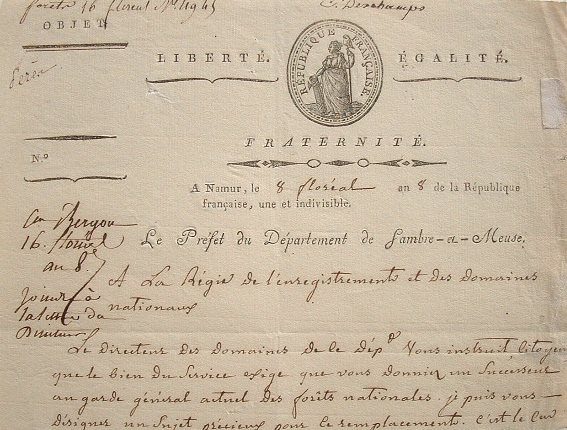 forêts 16 floreal N.º 1945
C. Deschamps
OBJET
LIBERTÉ.
RÉPUBLIQUE FRANÇAISE.
ÉGALITÉ.
FRATERNITÉ.
N.º
A Namur, le 8 floréal an 8 de la République
française, une et indivisible.
Le Préfet du Département de Sambre-et-Meuse.
16. floréal
an 8.
joindre à
la lettre du
Directeur
A La Régie de l'enregistrement et des Domaines
nationaux
Le Directeur des Domaines de le Dép. Vous instruit, Citoyen
que le bien du Service exige que vous donniez un Successeur
au garde général actuel des forêts nationales. je puis vous
désigner un Sujet précieux pour ce remplacement. C'est le